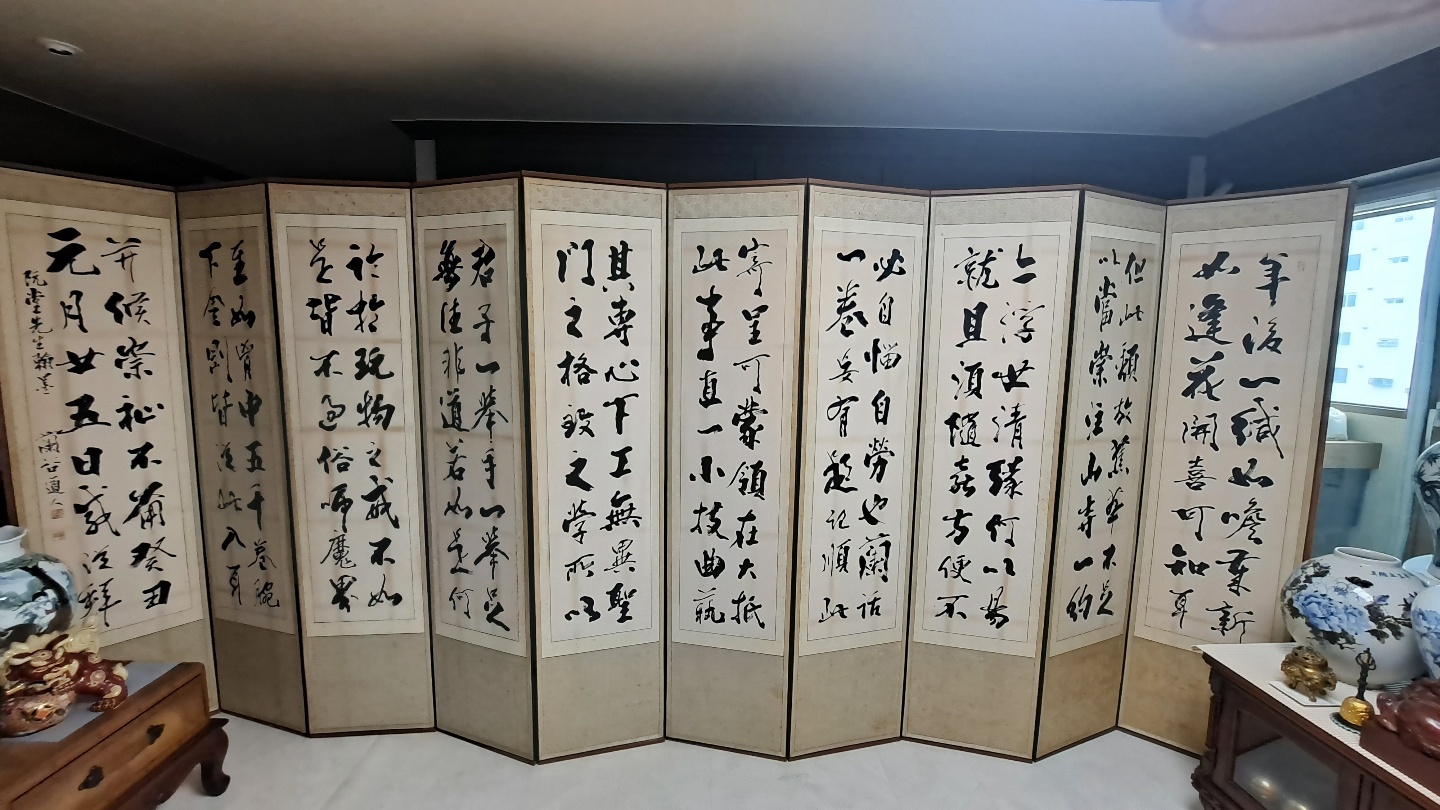 年後一緘如喚䒳新
如逢花開喜可知耳
但此類攷蕉華不足
以當崇注山寺一約
浮世清緣何以易
就且須隨喜方便不
必自惱自勞也蘭話
一卷妄有題記順此
寄呈可蒙領在大抵
此事直一小技曲藝
其專心下工無異聖
門之格致之學所以
君子一擧手一擧足
無往非道若如是何
於於玩物之戒不如
是皆不過俗師魔界
至如胸中五千卷腕
下金剛皆從此入耳
並候崇祉不備癸丑
元月廿五日
阮堂先生翰墨
蘭谷道人